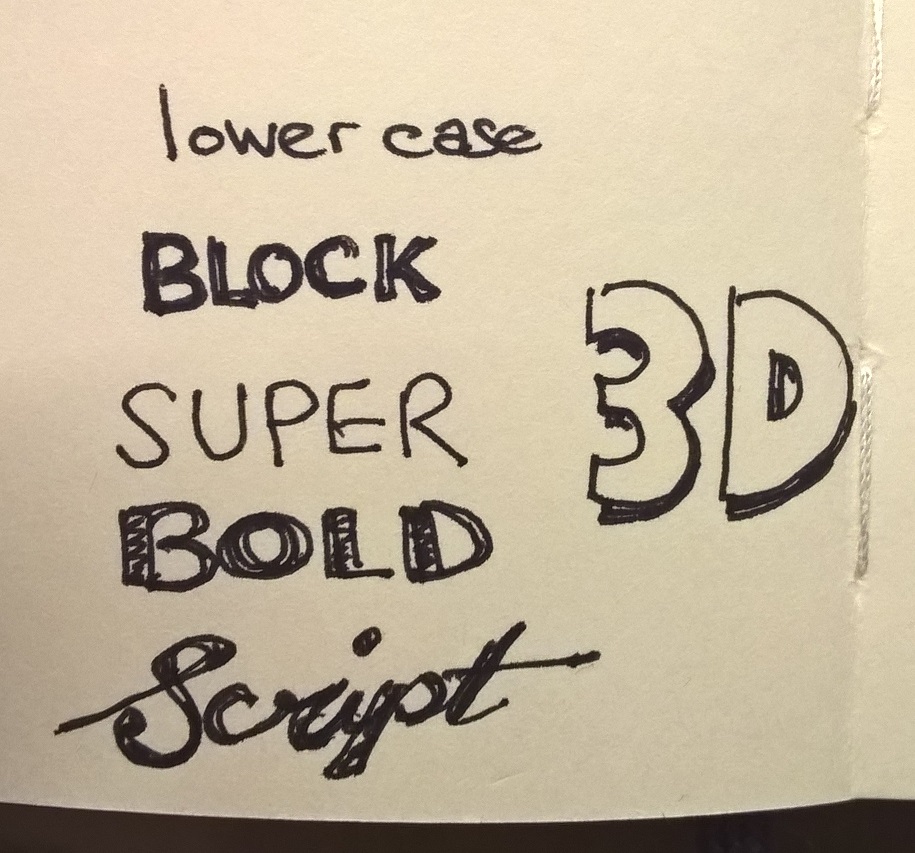 lower case
BLOCK
3D
SUPER
BOLD
Script